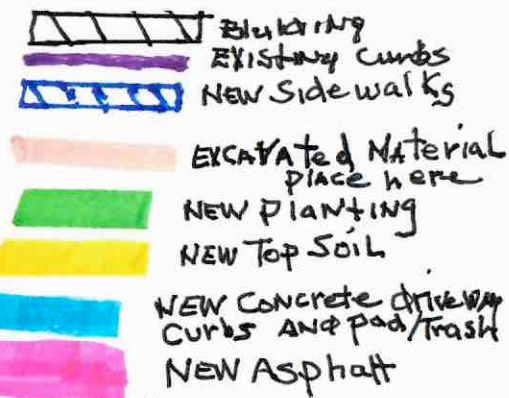 Building
EXISTING Curbs
NEW Sidewalks
EXCAVATED MATERIAL
PLACE here
NEW PLANTING
NEW TOP SOIL
NEW CONCRETE driveway
Curbs AND pad/Trash
NEW ASphalt